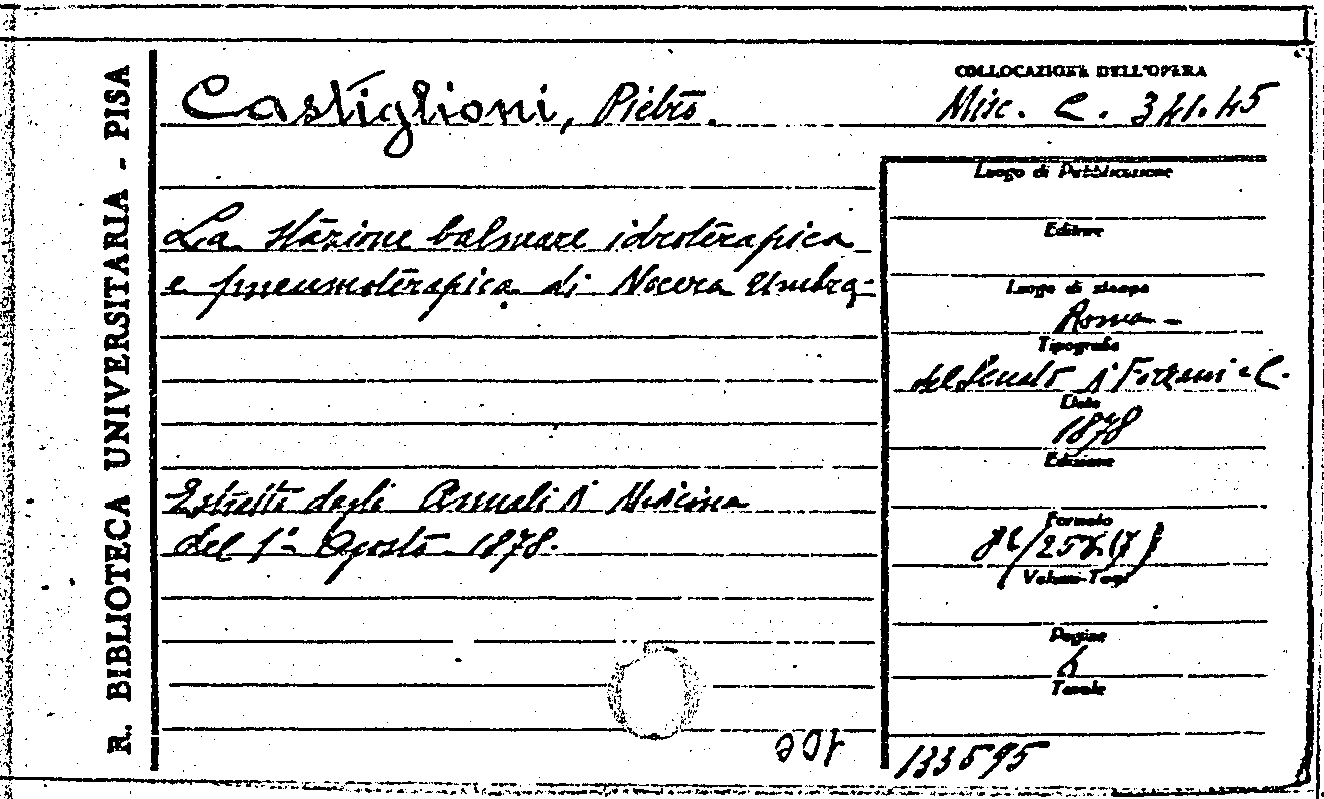 R. BIBLIOTECA UNIVERSITARIA - PISA
Castiglioni, Pietro.
La stazione balneare idroterapica
e pneumoterapica di Nocera Umbra-
Estratto dagli Annali di Medicina
del 1° Agosto 1878.
COLLOCAZIONE DELL'OPERA
Misc. C. 341.45
Luogo di Pubblicazione
Editore
Luogo di stampa
Roma -
Tipografia
del Senato di Forzani e C.
Data
1878
Edizione
Formato
Volumi-Tomi
Pagine
6
Tavole
133595